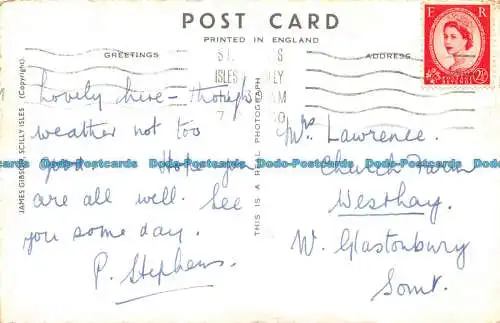 POST CARD
PRINTED IN ENGLAND
GREETINGS
ADDRESS
E R
2½
Lovely here - though
weather not too
good. Hope you
are all well. See
you some day.
P. Stephens.
Mrs Lawrence.
Church Farm
Westhay.
W. Glastonbury
Somt.
JAMES GIBSON, SCILLY ISLES (Copyright)
THIS IS A REAL PHOTOGRAPH
ISLES
AM
7
Dodo-Postcards Dodo-Postcards Dodo-Postcards Dodo-Postcards